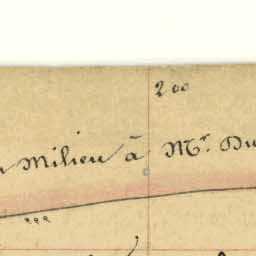 200
Milieu à Mr. Du